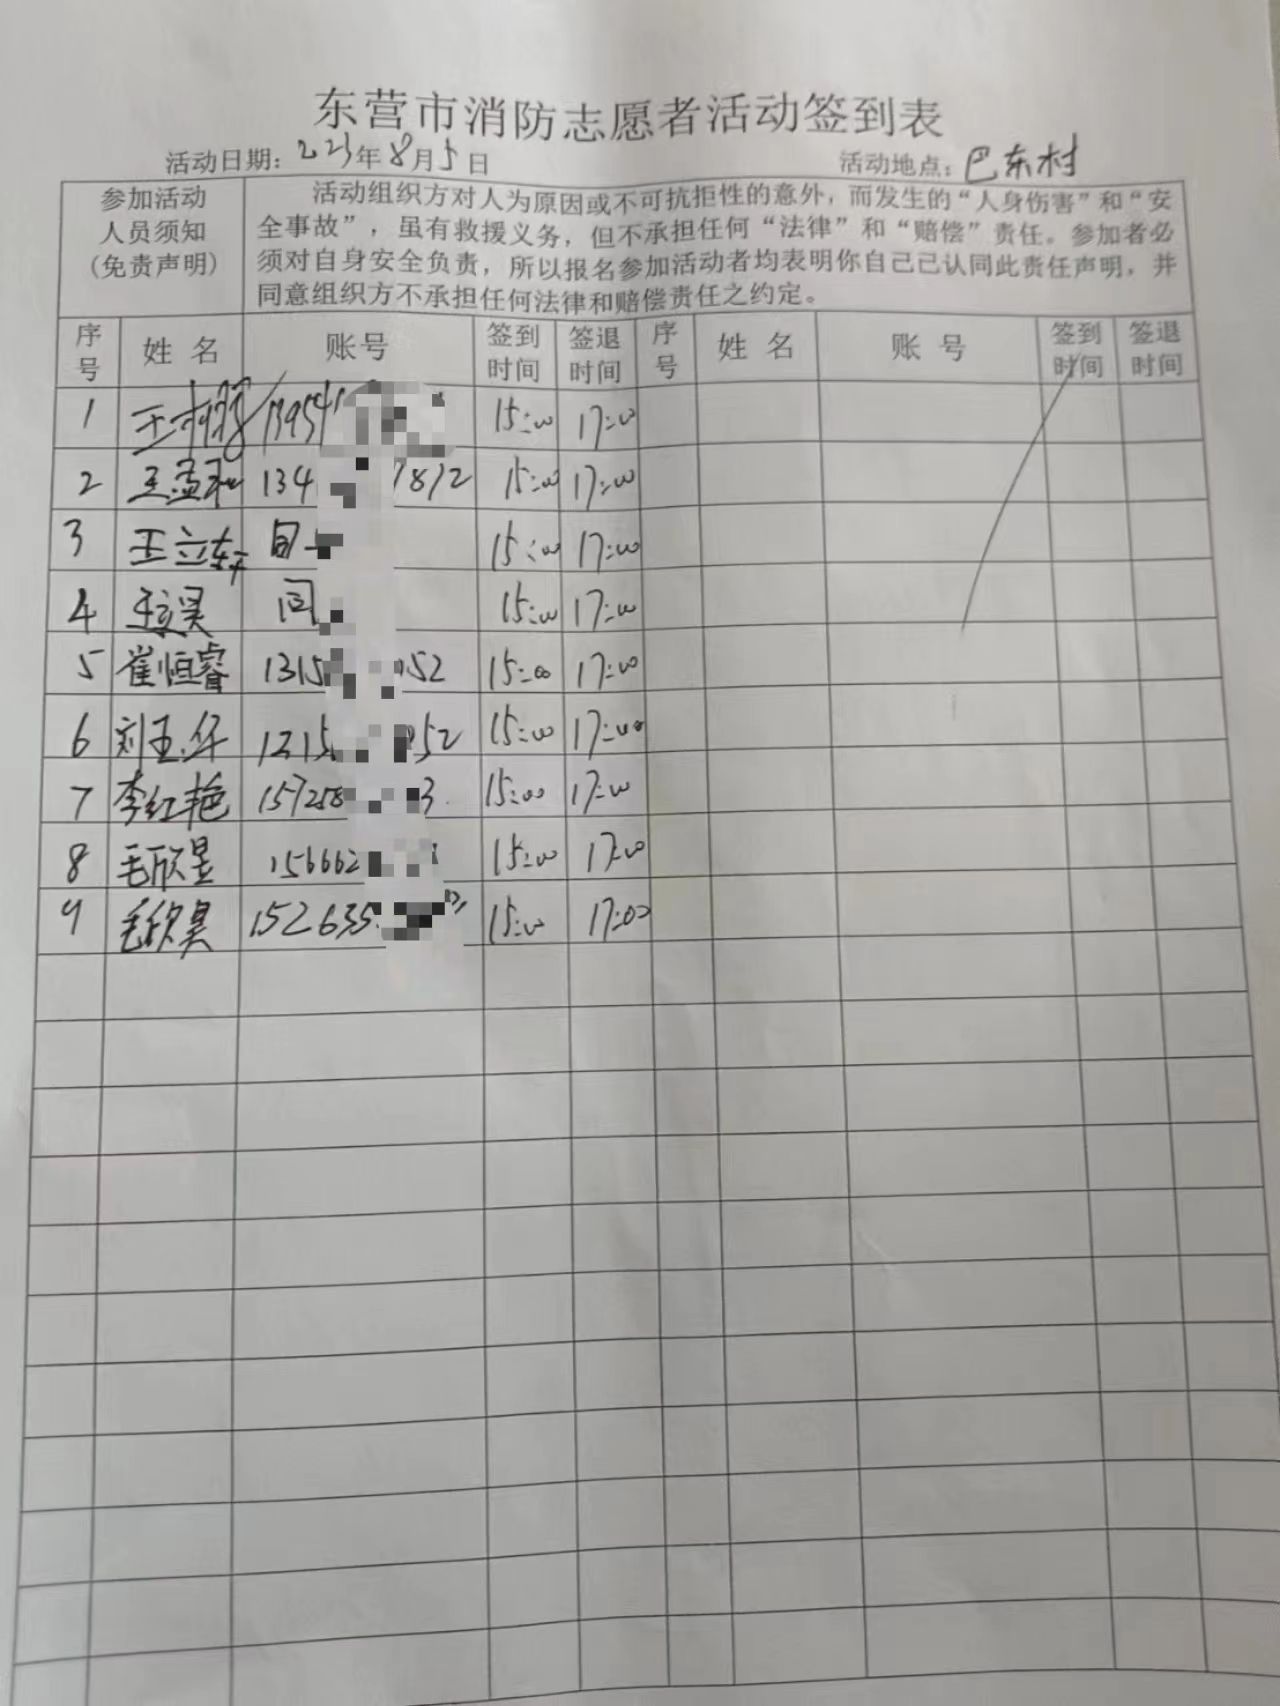 东营市消防志愿者活动签到表
活动日期：223年8月5日 活动地点：巴东村
参加活动人员须知(免责声明)
活动组织方对人为原因或不可抗拒性的意外，而发生的“人身伤害”和“安
全事故”，虽有救援义务，但不承担任何“法律”和“赔偿”责任。参加者必
须对自身安全负责，所以报名参加活动者均表明你自己已认同此责任声明，并
同意组织方不承担任何法律和赔偿责任之约定。
序号 姓名 账号 签到时间 签退时间 序号 姓名 账号 签到时间 签退时间
1 王 13954 15:00 17:00
2 王孟 134 7872 15:00 17:00
3 王立东 同 15:00 17:00
4 同 15:00 17:00
5 崔恒睿 1315 052 15:00 17:00
6 刘玉华 1315 052 15:00 17:00
7 李红艳 157258 3 15:00 17:00
8 毛欣昱 156662 15:00 17:00
9 毛欣昊 152635 15:00 17:00